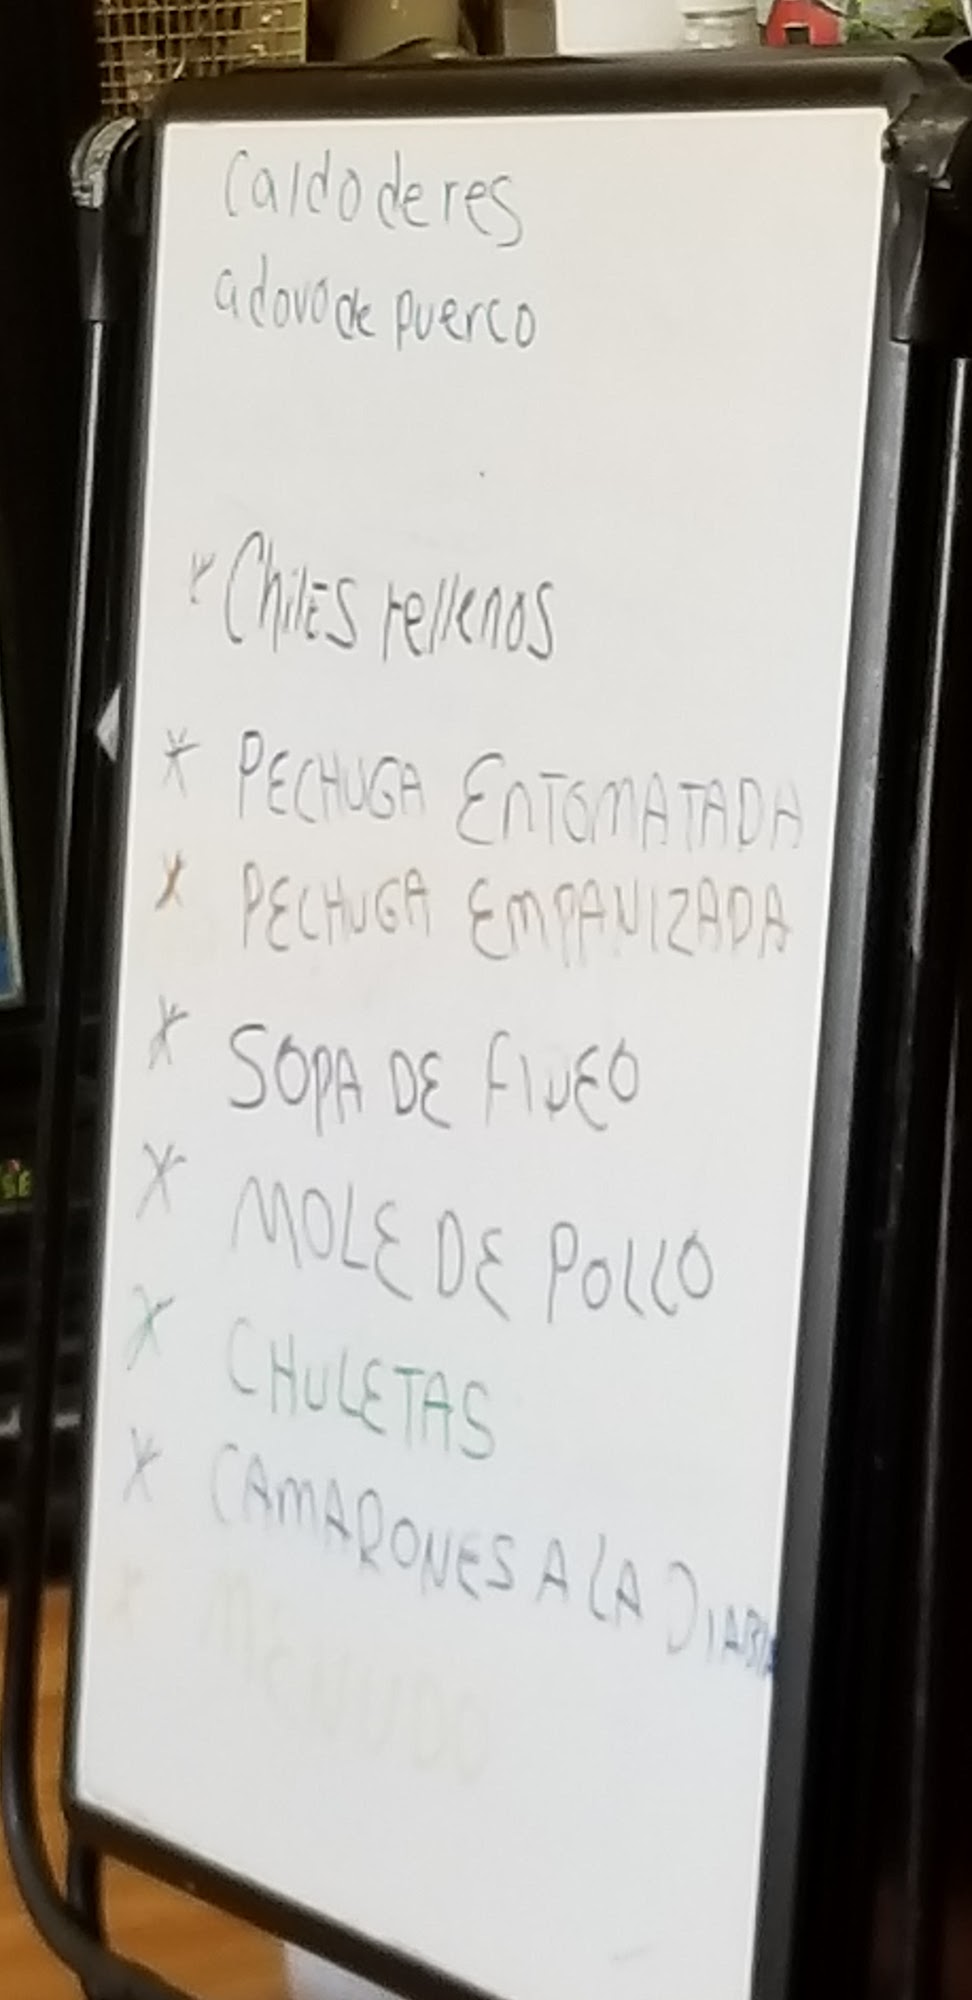 Caldo de res
adovo de puerco
* Chiles rellenos
* PECHUGA ENTOMATADA
* PECHUGA EMPANIZADA
* SOPA DE FIDEO
* MOLE DE POLLO
* CHULETAS
* CAMARONES A LA DIABLA
* MENUDO
SE